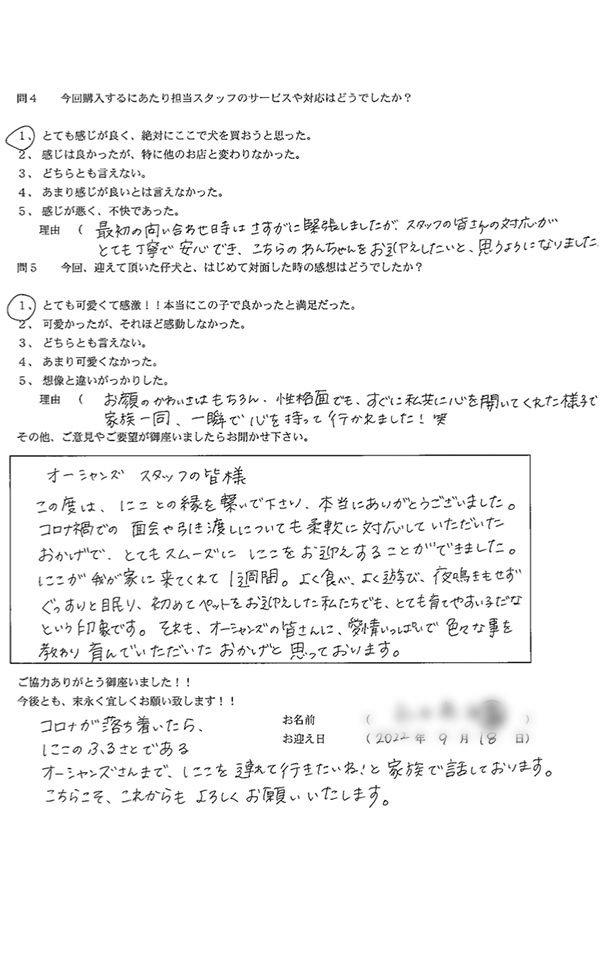 問4　今回購入するにあたり担当スタッフのサービスや対応はどうでしたか？
1、とても感じが良く、絶対にここで犬を買おうと思った。
2、感じは良かったが、特に他のお店と変わりなかった。
3、どちらとも言えない。
4、あまり感じが良いとは言えなかった。
5、感じが悪く、不快であった。
理由　（　最初の問い合わせ時はさすがに緊張しましたが、スタッフの皆さんの対応が
とても丁寧で安心でき、こちらのわんちゃんをお迎えしたいと、思うようになりました
問5　今回、迎えて頂いた仔犬と、はじめて対面した時の感想はどうでしたか？
1、とても可愛くて感激！！本当にこの子で良かったと満足だった。
2、可愛かったが、それほど感動しなかった。
3、どちらとも言えない。
4、あまり可愛くなかった。
5、想像と違いがっかりした。
理由　（　お顔のかわいさはもちろん、性格面でも、すぐに私共に心を開いてくれた様子で
家族一同、一瞬で心を持って行かれました！笑
その他、ご意見やご要望が御座いましたらお聞かせ下さい。
オーシャンズ　スタッフの皆様
この度は、にことの縁を繋いで下さい、本当にありがとうございました。
コロナ禍での面会や引き渡しについても柔軟に対応していただいた
おかげで、とてもスムーズににこをお迎えすることができました。
にこが我が家に来てくれて1週間。よく食べ、よく遊び、夜鳴きもせず
ぐっすりと眠り、初めてペットをお迎えした私たちでも、とても育てやすい子だな
という印象です。それも、オーシャンズの皆さんに、愛情いっぱいで色々な事を
教わり育んでいただいたおかげと思っております。
ご協力ありがとう御座いました！！
今後とも、末永く宜しくお願い致します！！
お名前　（　　）
お迎え日　（2022年9月18日）
コロナが落ち着いたら、
にこのふるさとである
オーシャンズさんまで、にこを連れて行きたいね！と家族で話しております。
こちらこそ、これからもよろしくお願いいたします。